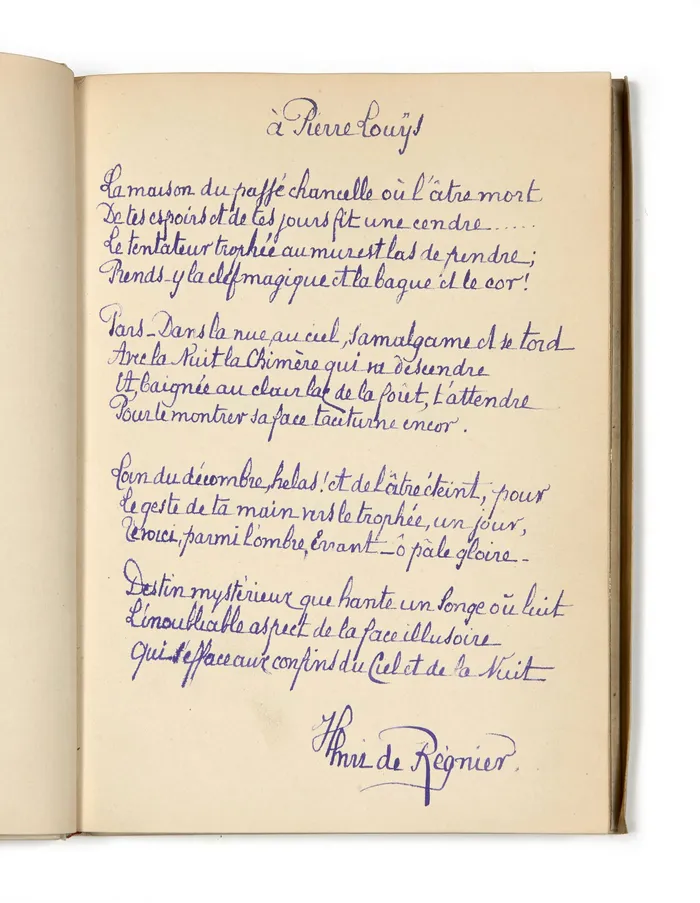 à Pierre Louÿs
La maison du passé chancelle où l'âtre mort
De tes espoirs et de tes jours fit une cendre......
Le tentateur trophée au mur est las de pendre;
Prends-y la clef magique et la bague et le cor!
Pars_Dans la nue, au ciel, s'amalgame et se tord
Avec la Nuit la Chimère qui va descendre
Et, baignée au clair lac de la forêt, t'attendre
Pour te montrer sa face taciturne encor.
Loin du décombre, helas! et de l'âtre éteint, pour
Le geste de ta main vers le trophée, un jour,
Te voici, parmi l'ombre, Errant _ ô pâle gloire_
Destin mystérieux que hante un Songe où luit
L'inoubliable aspect de la face illusoire
Qui s'efface aux confins du Ciel et de la Nuit
Henri de Régnier.